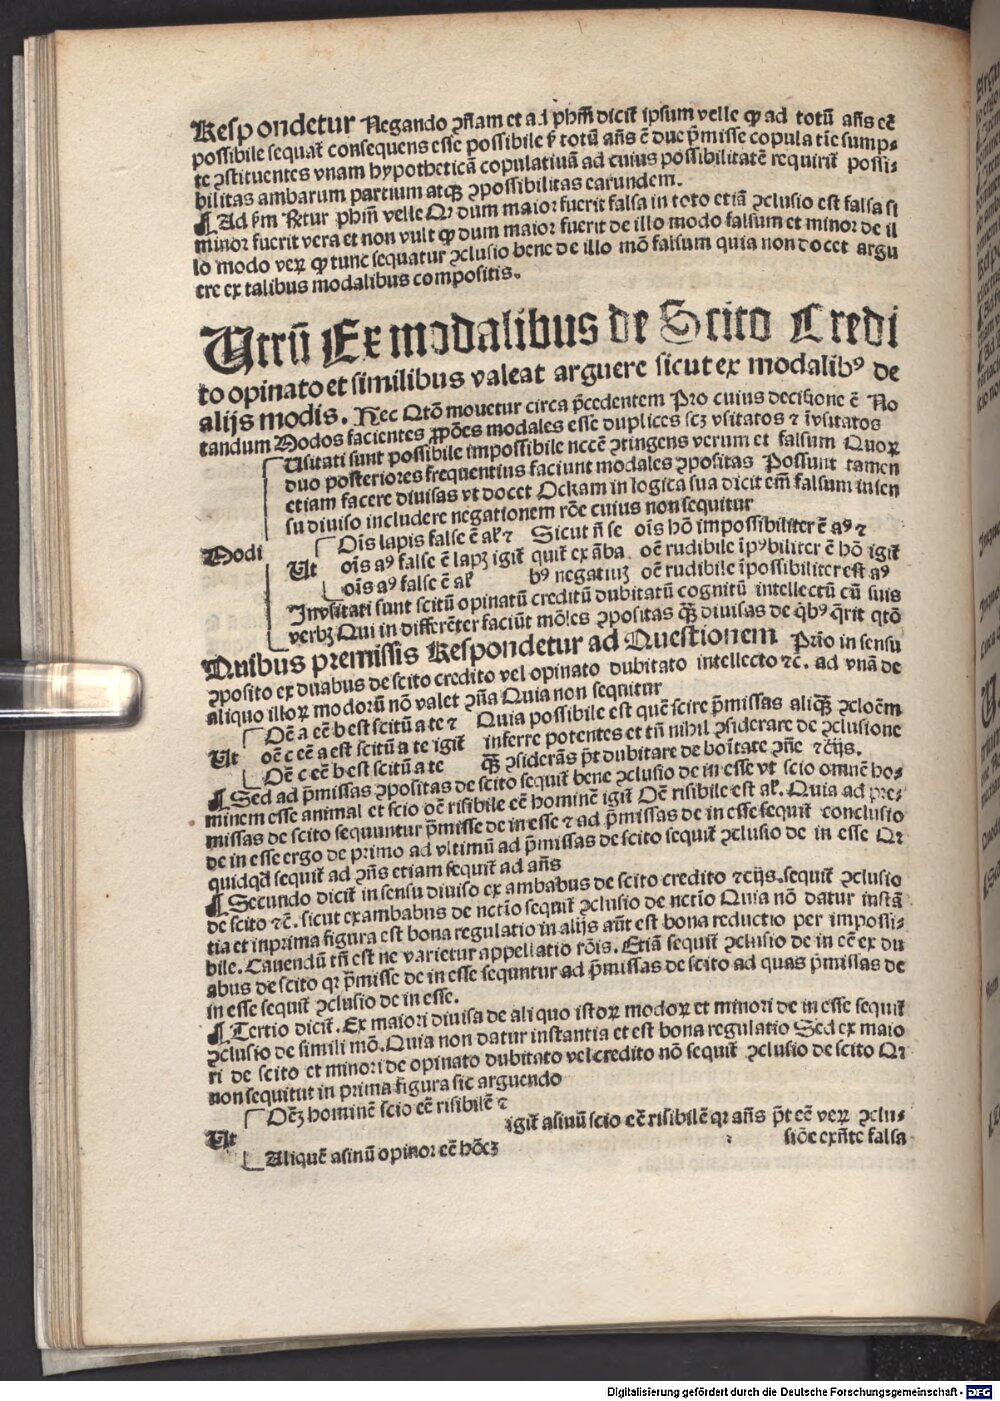 Respondetur Negando ꝯñam et ad pħm dicit̄ ipsum velle ꝙ ad totū añs eē
possibile sequat̄ consequens esse possibile s̄ totū añs ē due p̄misse copulatīe sump⸗
te ꝯstituentes vnam hypotheticā copulatiuā ad cuius possibilitatē requirit̄ possi⸗
bilitas ambarum partium atqꝫ ꝯpossibilitas earundem.
¶ Ad s̄m Rr̄tur pħm velle Qꝛ dum maior fuerit falsa in toto etiā ꝯclusio est falsa si
minor fuerit vera et non vult ꝙ dum maior fuerit de illo modo falsum et minor de il
lo modo veꝝ ꝙ tunc sequatur ꝯclusio bene de illo mō falsum quia non docet argu
ere ex talibus modalibus compositis.
Utrū Ex modalibus de Scito Credi
to opinato et similibus valeat arguere sicut ex modalibꝰ de
alijs modis. Hec Qtō mouetur circa p̄cedentem Pro cuius decisione ē No
tandum Modos facientes ꝓpōes modales esse duplices scꝫ vsitatos ⁊ īvsitatos
Usitati sunt possibile impossibile necē ꝯtingens verum et falsum Quoꝝ
duo posteriores frequentius faciunt modales ꝯpositas Possunt tamen
etiam facere diuisas vt docet Ockam in logica sua dicit em̄ falsum in sen
su diuiso includere negationem rōe cuius non sequitur
Modi
Ut
Oīs lapis false ē al̄ ⁊ Sicut ñ se oīs hō impossibiliter ē aꝰ ⁊
oīs aꝰ false ē lapꝫ igit̄ quit̄ ex āba oē rudibile īpꝰbiliter ē hō igit̄
oīs aꝰ false ē al̄ bꝰ negatiuꝫ oē rudibile īpossibiliter est aꝰ
Invsitati sunt scitū opinatū creditū dubitatū cognitū intellectū cū suis
verbꝫ Qui indifferēter faciūt mōles ꝯpositas qꝫ̄ diuisas de q̄bꝰ q̄rit qtō
Quibus premissis Respondetur ad Questionem Prīo in sensu
ꝯposito ex duabus de scito credito vel opinato dubitato intellecto ⁊c̄. ad vnā de
aliquo illoꝝ modorū nō valet ꝯña Quia non sequitur
Ut
Oē a eē b est scitū a te ⁊ Quia possibile est quē scire p̄missas aliqꝫ̄ ꝯcloēm
oē c eē a est scitū a te igit̄ inferre potentes et tñ nihil ꝯsiderare de ꝯclusione
Oē c eē b est scitū a te qꝫ̄ ꝯsiderās p̄t dubitare de boītate ꝯñe ⁊c̄ijs.
¶ Sed ad p̄missas ꝯpositas de scito sequit̄ bene ꝯclusio de in esse vt scio omnē ho⸗
minem esse animal et scio oē risibile eē hominē igit̄ Oē risibile est al̄. Quia ad pre⸗
missas de scito sequuntur p̄misse de in esse ⁊ ad p̄missas de in esse sequit̄ conclusio
de in esse ergo de primo ad vltimū ad p̄missas de scito sequit̄ ꝯclusio de in esse Qꝛ
quidqd̄ sequit̄ ad ꝯñs etiam sequit̄ ad añs
¶ Secundo dicit̄ in sensu diuiso ex ambabus de scito credito ⁊c̄ijs. sequit̄ ꝯclusio
de scito ⁊c̄. sicut ex ambabus de nctīo sequit̄ ꝯclusio de nctīo Quia nō datur instā
tia et in prima figura est bona regulatio in alijs aūt est bona reductio per impossi⸗
bile. Cauendū tñ est ne varietur appellatio rōis. Etiā sequit̄ ꝯclusio de in eē ex du
abus de scito qꝛ p̄misse de in esse sequntur ad p̄missas de scito ad quas p̄missas de
in esse sequit̄ ꝯclusio de in esse.
¶ Tertio dicit̄. Ex maiori diuisa de aliquo istoꝝ modoꝝ et minori de in esse sequit̄
ꝯclusio de simili mō. Quia non datur instantia et est bona regulatio Sed ex maio
ri de scito et minori de opinato dubitato vel credito nō sequit̄ ꝯclusio de scito Qꝛ
non sequitut in prima figura sic arguendo
Ut
Oēꝫ hominē scio eē risibilē ⁊
igit̄ asinū scio eē risibilē qꝛ añs p̄t eē veꝝ ꝯclu⸗
sīōe exn̄te falsa
Aliquē asinū opinor eē hōēꝫ
Digitalisierung gefördert durch die Deutsche Forschungsgemeinschaft - DFG